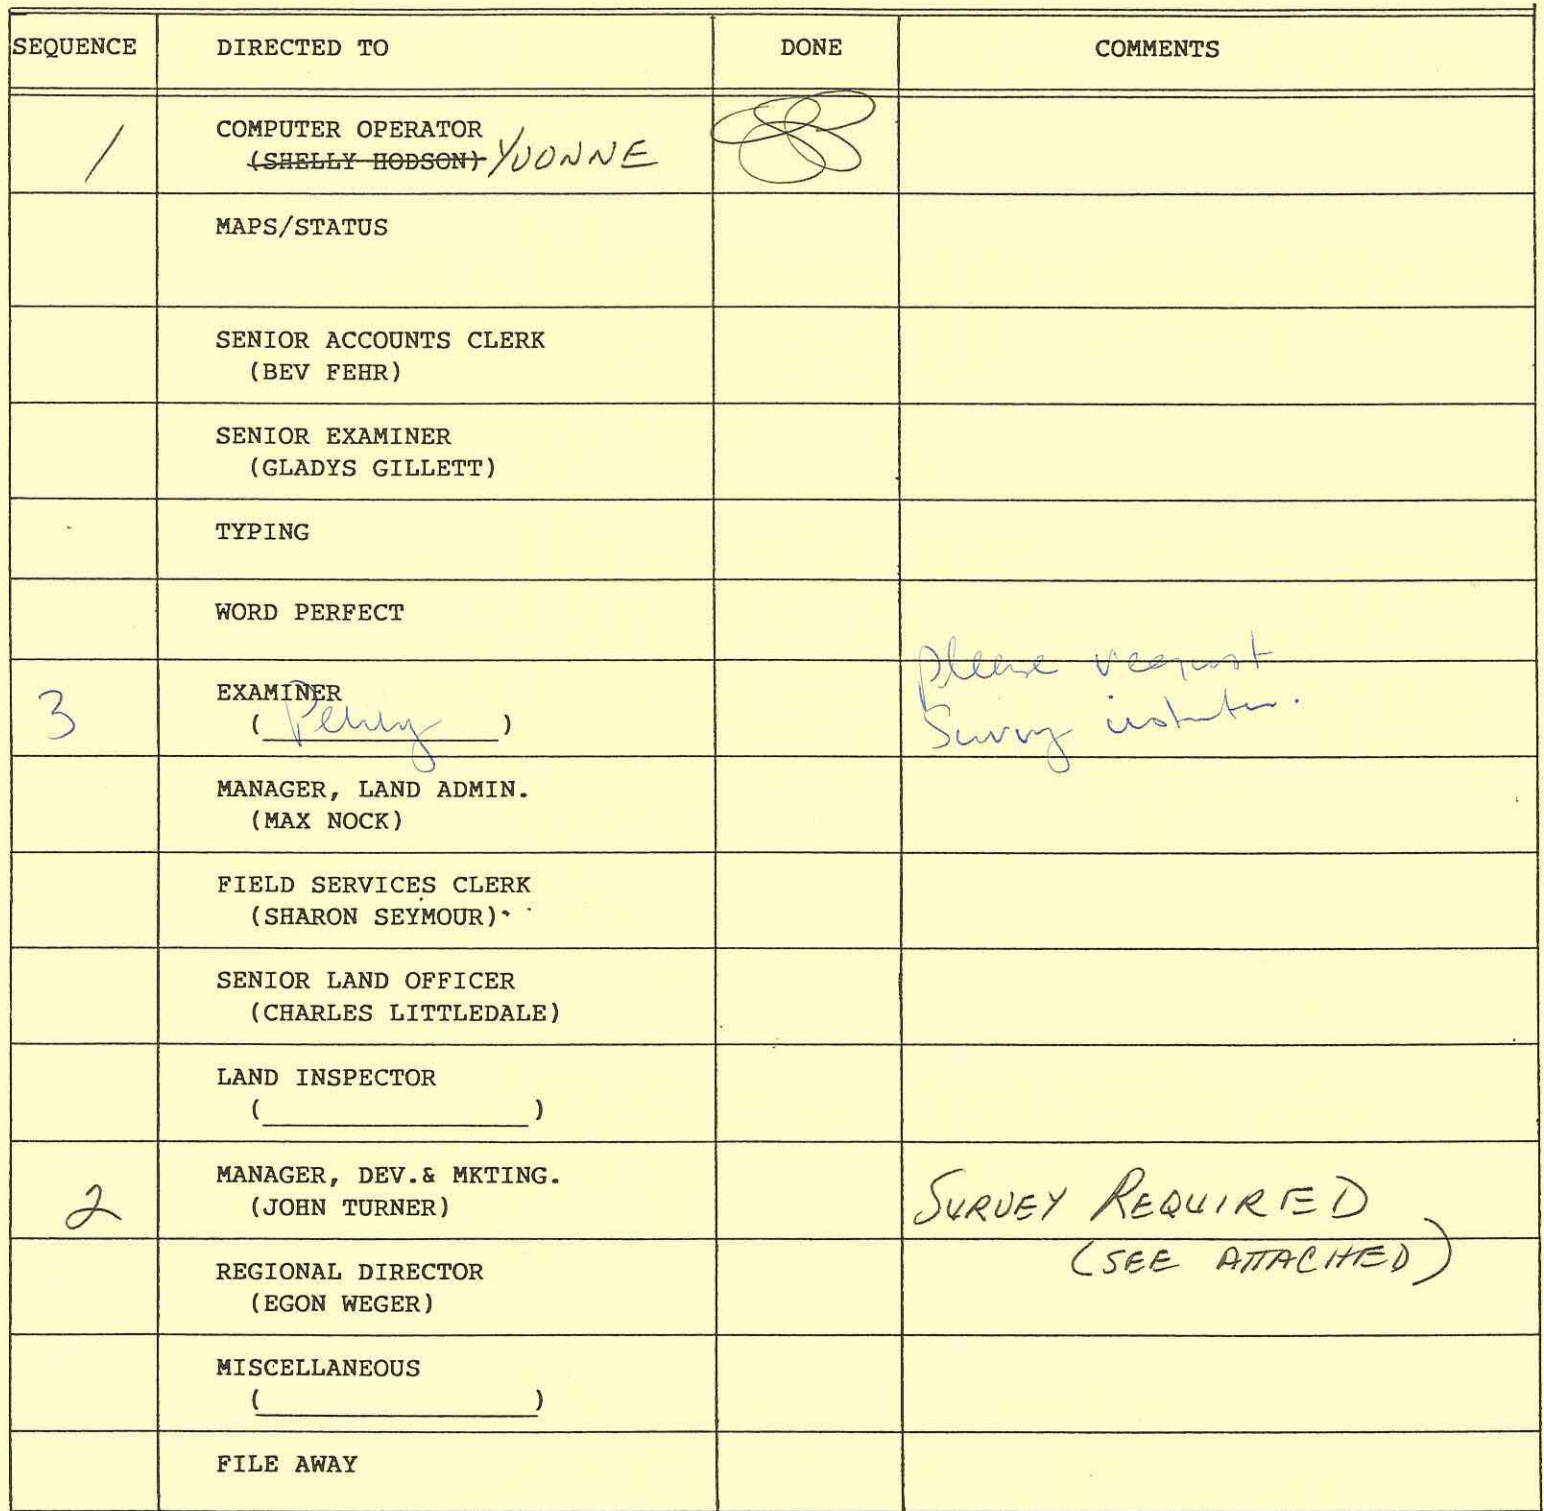 SEQUENCE DIRECTED TO DONE COMMENTS
1 COMPUTER OPERATOR
(SHELLY HODSON) YVONNE
MAPS/STATUS
SENIOR ACCOUNTS CLERK
(BEV FEHR)
SENIOR EXAMINER
(GLADYS GILLETT)
TYPING
WORD PERFECT
please request
3 EXAMINER
( ) Survey
MANAGER, LAND ADMIN.
(MAX NOCK)
FIELD SERVICES CLERK
(SHARON SEYMOUR)
SENIOR LAND OFFICER
(CHARLES LITTLEDALE)
LAND INSPECTOR
( )
MANAGER, DEV.& MKTING.
2 (JOHN TURNER) SURVEY REQUIRED
(SEE ATTACHED)
REGIONAL DIRECTOR
(EGON WEGER)
MISCELLANEOUS
( )
FILE AWAY